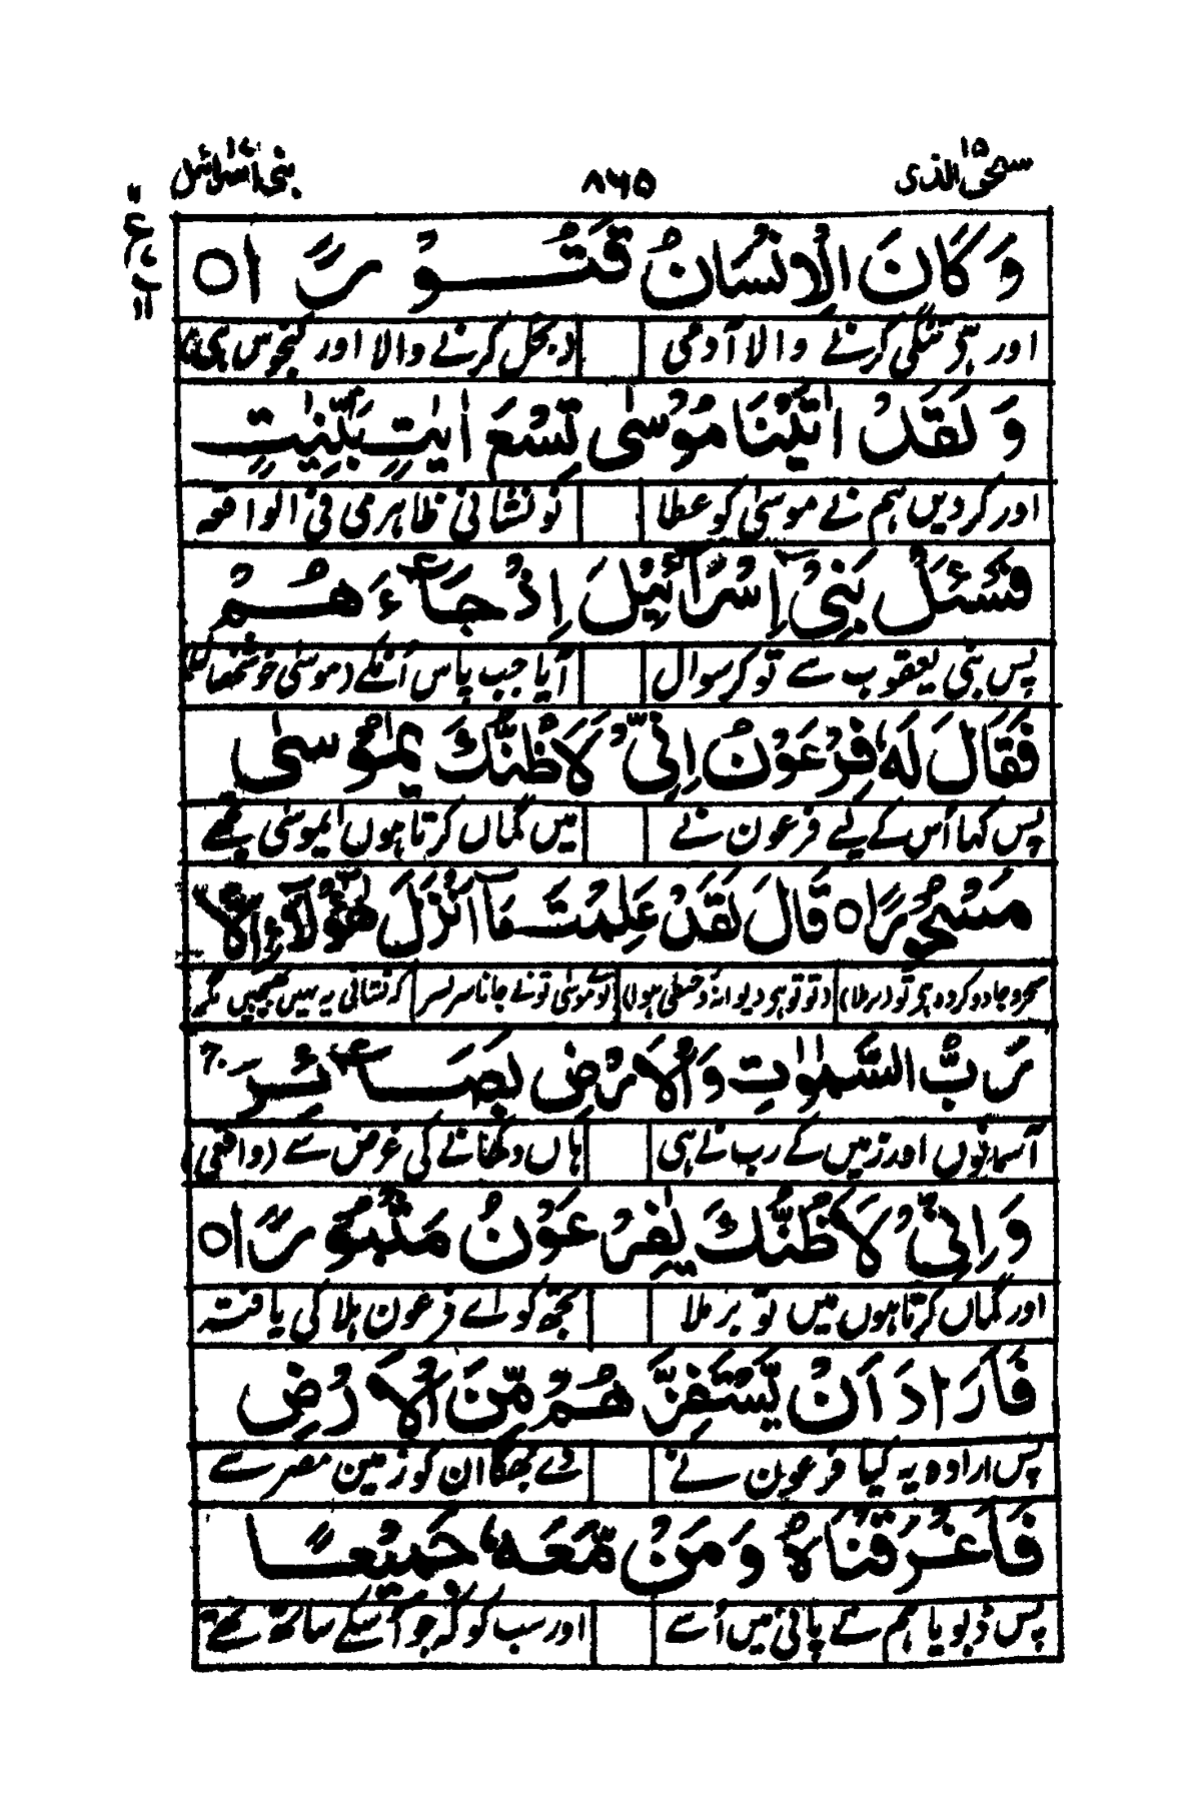 سبحٰن الذی ۱۵ ۸۶۵ بنی اسرائیل ۱۷
وَكَانَ الْاِنْسَانُ قَتُوْرًا ۝
اور ہے تنگی کرنے والا آدمی (بخل کرنے والا اور کنجوس ہی)
وَلَقَدْ اٰتَيْنَا مُوْسٰى تِسْعَ اٰيٰتٍۭ بَيِّنٰتٍ
اور کر دیں ہم نے موسیٰ کو عطا نو نشانی ظاہر می فی الواقعہ
فَسْـَٔلْ بَنِيْۤ اِسْرَآءِيْلَ اِذْ جَآءَهُمْ
پس بنی یعقوب سے تو کر سوال آیا جب پاس اُنکے (موسیٰ
فَقَالَ لَهٗ فِرْعَوْنُ اِنِّيْ لَاَظُنُّكَ يٰمُوْسٰى
پس کہا اُس کے لیے فرعون نے میں گماں کرتا ہوں ایموسیٰ تجھے
مَسْحُوْرًا ۝ قَالَ لَقَدْ عَلِمْتَ مَاۤ اَنْزَلَ هٰۤؤُلَآءِ اِلَّا
(تو تو ہے دیوانہ و خبطی ہوا) تو نے جانا سر بسر کہ نشانی یہ نہیں مگر
رَبُّ السَّمٰوٰتِ وَالْاَرْضِ بَصَآئِرَ
آسمانوں اور زمیں کے رب نے ہی ہاں دکھانے کی غرض سے (واقعی)
وَاِنِّيْ لَاَظُنُّكَ يٰفِرْعَوْنُ مَثْبُوْرًا ۝
اور گماں کرتا ہوں میں تو برملا تجھ کو اے فرعون ہلاکی یافتہ
فَاَرَادَ اَنْ يَّسْتَفِزَّهُمْ مِّنَ الْاَرْضِ
پس ارادہ یہ کیا فرعون نے دے بھگا ان کو زمین مصر سے
فَاَغْرَقْنٰهُ وَمَنْ مَّعَهٗ جَمِيْعًا
پس ڈبویا ہم نے پانی میں اُسے اور سب کو کہ جو اُسکے ساتھ تھے